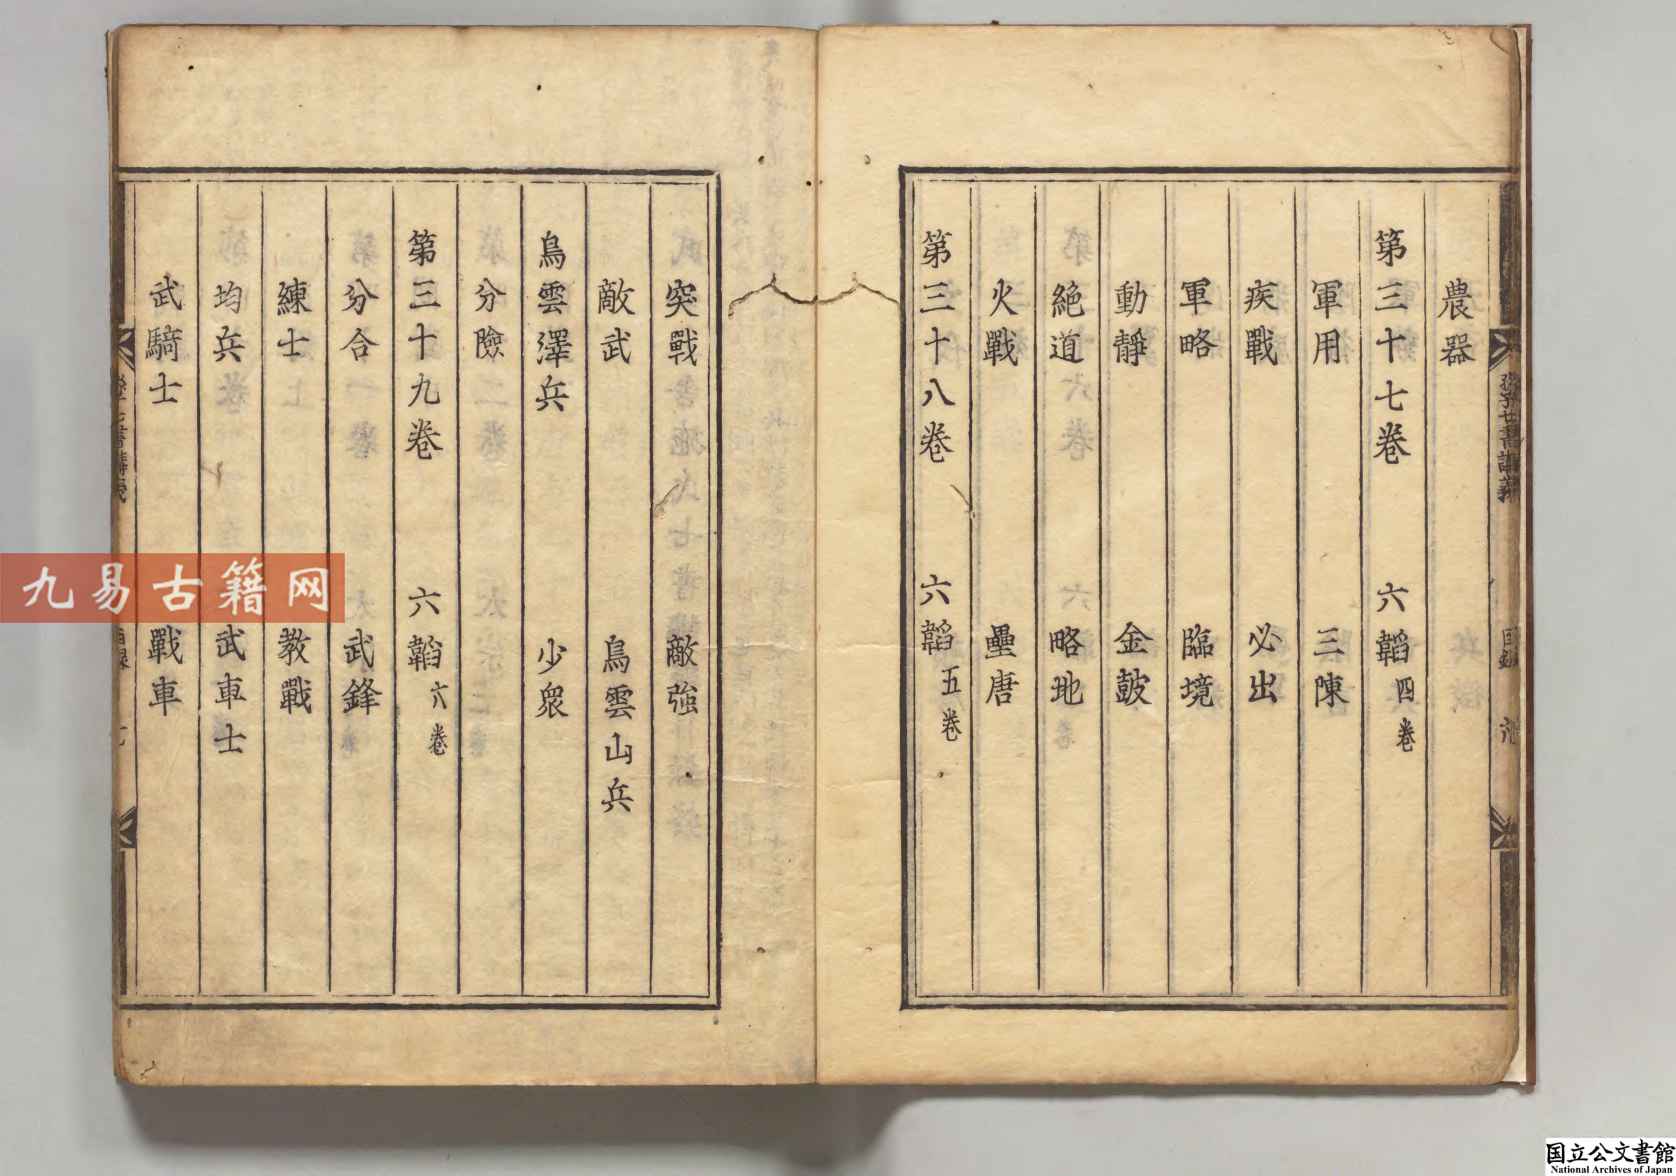 農器
第三十七卷 六韜四卷
軍用 三陳
疾戰 必出
軍略 臨境
動靜 金皷
絕道 略地
火戰 壘虛
第三十八卷 六韜五卷
突戰 敵強
敵武 鳥雲山兵
鳥雲澤兵 少衆
分險
第三十九卷 六韜六卷
分合 武鋒
練士 教戰
均兵 武車士
武騎士 戰車
九易古籍网
国立公文書館
National Archives of Japan